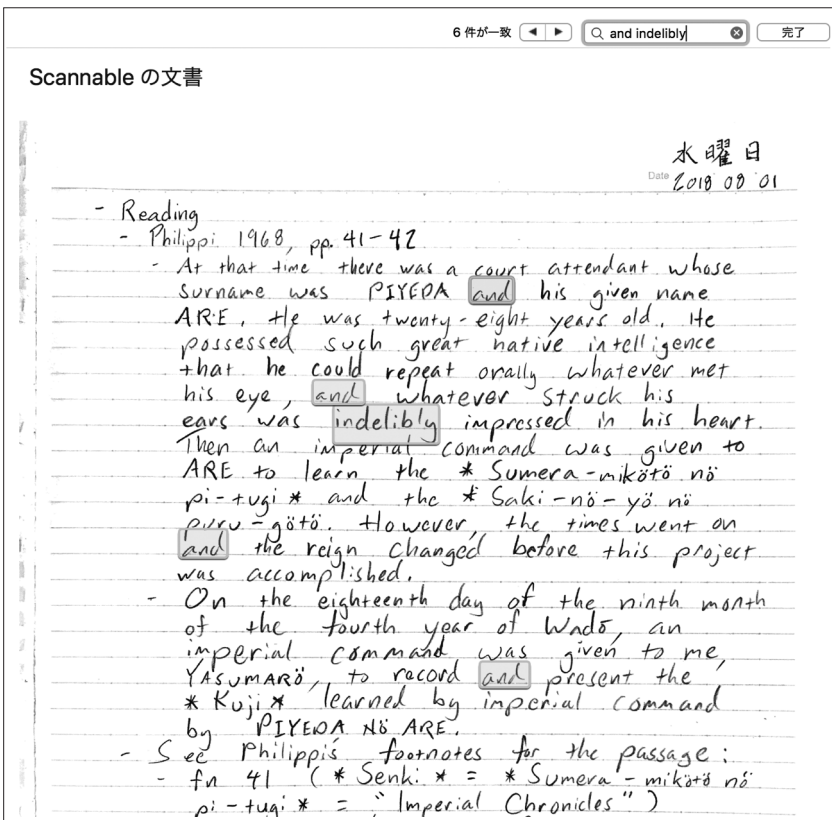 6 件が一致 ◀ ▶ and indelibly 完了
Scannable の文書
水曜日
Date 2018 08 01
- Reading
- Philippi 1968, pp. 41-42
- At that time there was a court attendant whose
surname was PIYEDA and his given name
ARE. He was twenty-eight years old. He
possessed such great native intelligence
that he could repeat orally whatever met
his eye, and whatever struck his
ears was indelibly impressed in his heart.
Then an imperial command was given to
ARE to learn the * Sumera-mikötö nö
pi-tugi * and the * Saki-nö-yö nö
puru-götö. However, the times went on
and the reign changed before this project
was accomplished.
- On the eighteenth day of the ninth month
of the fourth year of Wadō, an
imperial command was given to me,
YASUMARÖ, to record and present the
* Kuji * learned by imperial command
by PIYEDA NÖ ARE.
- See Philippi's footnotes for the passage:
- fn 41 (* Senki * = * Sumera-mikötö nö
pi-tugi * = "Imperial Chronicles")